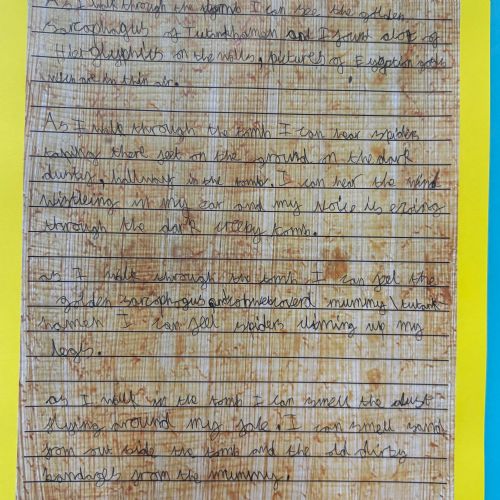 As I walk through the tomb I can see the golden
sarcophagus of Tutankhamen and I found alot of
Hieroglyphics on the walls, pictures of Egyptian gods
thin air.
As I walk through the tomb I can hear spiders
taping there feet on the ground on the dark
dusty, hallway in the tomb. I can hear the wind
wistleing in my ear and my voice is ecoing
through the dark creepy tomb.
as I walk through the tomb I can feel the
golden sarcophagus mummy tutank
hamen I can feel spiders climing up my
legs.
as I walk in the tomb I can smell the dust
flying around my face. I can smell sand
from out side the tomb and the old dirty
bandages from the mummy.